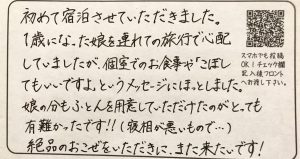 初めて宿泊させていただきました。
1歳になった娘を連れての旅行で心配
していましたが、個室でのお食事や「こぼし
てもいいですよ」というメッセージにほっとしました。
娘の分もふとんを用意していただけたのがとっても
有難かったです!!(寝相が悪いもので…)
絶品のおこぜをいただきに、また来たいです!
スマホでも投稿
OK!チェック欄
記入後フロント
へお渡し下さい。